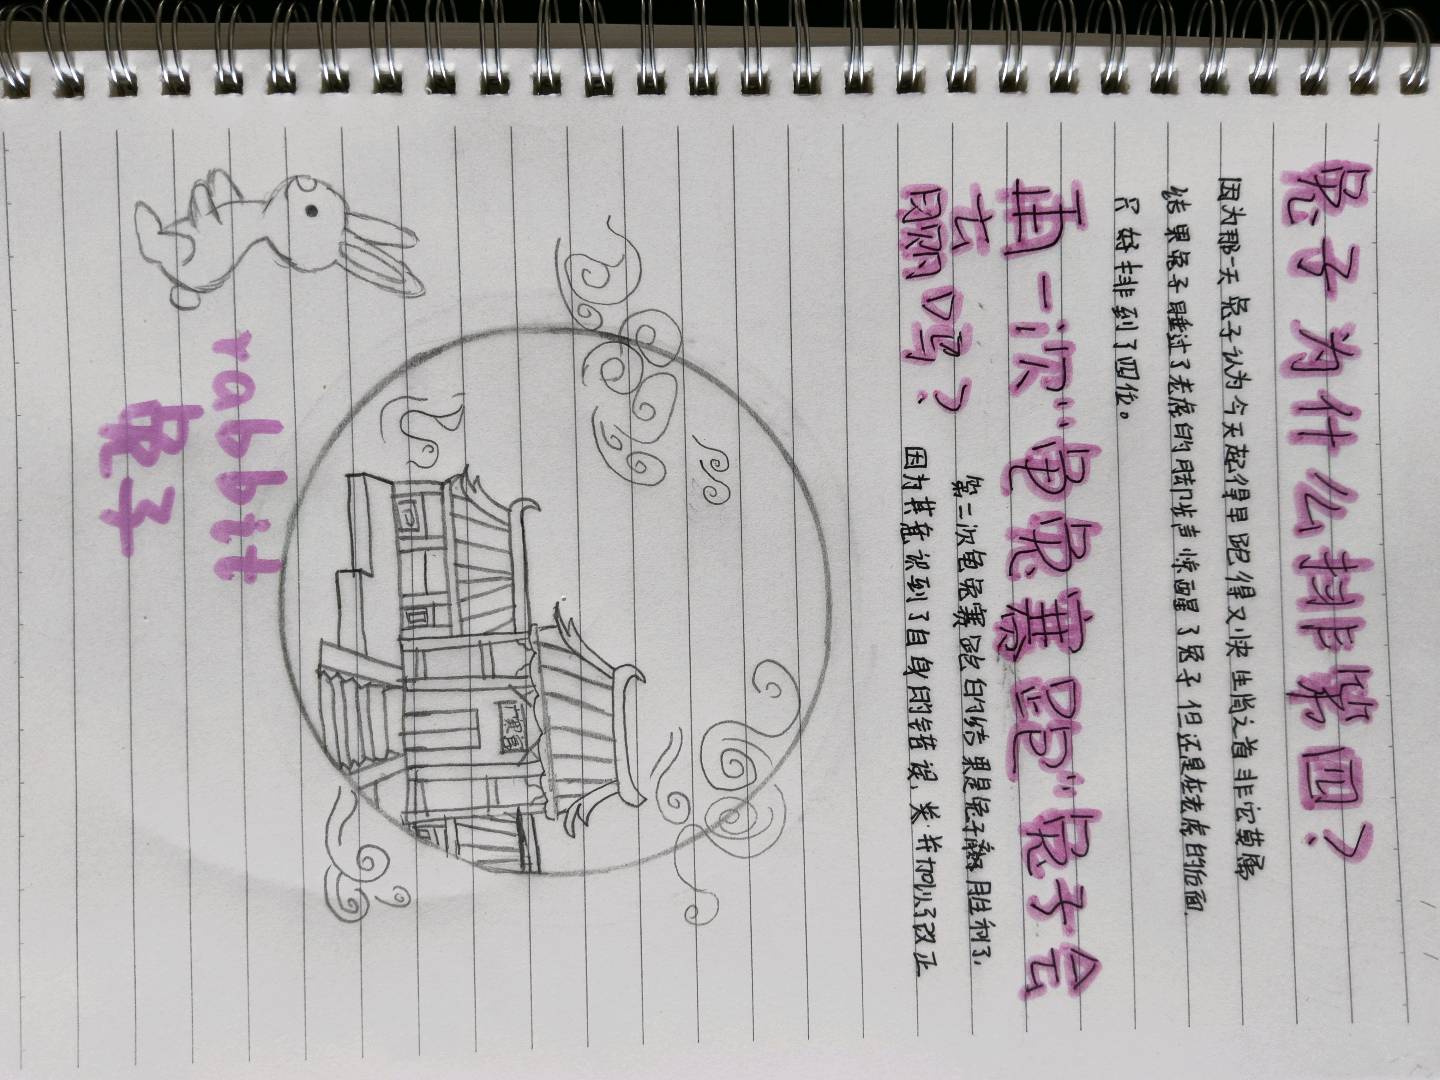 兔子为什么排第四?
因为那一天兔子认为今天起得早跑得又快生肖之首非它莫属
结果兔子睡过了老虎的脚步声惊醒了兔子但还是在老虎的后面,
只好排到了四位。
再一次“龟兔赛跑”兔子会
去
第二次龟兔赛跑的结果是兔子 胜利了,
吗?
因为其意识到了自身的错误,关 并加以了改正
广寒宫
rabbit
兔子